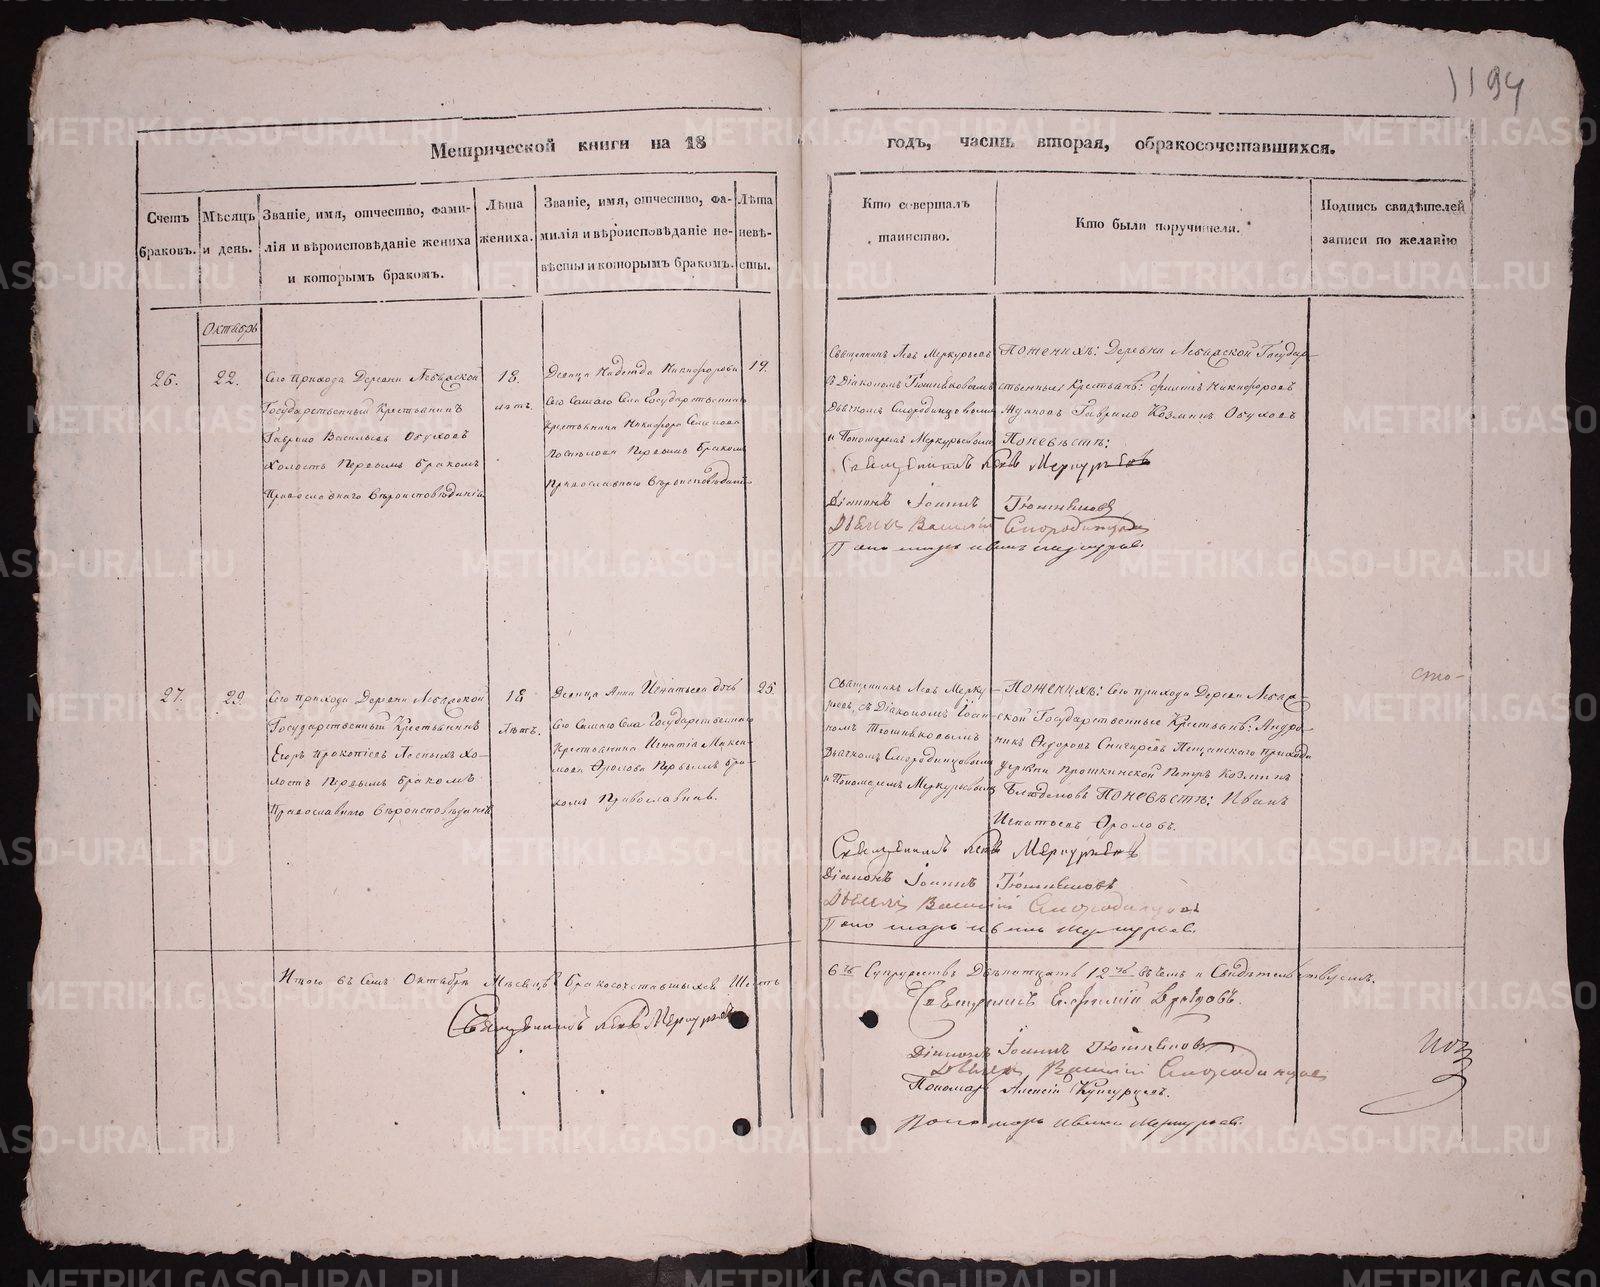 1194
Метрической книги на 18 годъ, часть вторая, о бракосочетавшихся.
Счетъ браковъ.
Мѣсяцъ и день.
Званіе, имя, отчество, фами-
лія и вѣроисповѣданіе жениха
и которымъ бракомъ.
Лѣта
жениха.
Званіе, имя, отчество, фа-
милія и вѣроисповѣданіе не-
вѣсты и которымъ бракомъ.
Лѣта
невѣ-
сты.
Кто совершалъ
таинство.
Кто были поручители.
Подпись свидѣтелей
записи по желанію
Октябрь
26.
22.
Сего прихода Деревни
Государственный Крестьянинъ
Гаврило Васильевъ Обуховъ
Холостъ Первымъ бракомъ
Православнаго Вѣроисповѣданія
18.
лѣтъ.
Девица Надежда Никифорова
Сего Самаго Села Государственнаго
крестьянина Никифора Семенова
Первымъ бракомъ
Православнаго Вѣроисповѣданія
19.
Священникъ Левъ Меркурьевъ
съ Діакономъ Тюшняковымъ
Дьячкомъ Смородинцовымъ
и Пономаремъ Меркурьевымъ
По женихѣ: Деревни Государ-
ственные Крестьянѣ: Никифоровъ
Гаврило Козминъ Обуховъ
По невѣстѣ:
Священникъ Левъ Меркурьевъ
Діаконъ Іоаннъ Тюшняковъ
Дьячекъ Василій Смородинцовъ
Пономарь Иванъ Меркурьев.
27.
29.
Сего прихода Деревни
Государственный Крестьянинъ
Егоръ Прокопіевъ Хо-
лостъ Первымъ бракомъ
Православнаго Вѣроисповѣданія
18
Лѣтъ.
Девица Анна Игнатьева дочь
Сего Самаго Села Государственнаго
Крестьянина Игнатія Макси-
мова Фролова Первымъ бра-
комъ Православнаго.
25.
Священникъ Левъ Мерку-
рьевъ, съ Діакономъ Іоан-
номъ Тюшняковымъ
Дьячкомъ Смородинцовымъ
и Пономаремъ Меркурьевымъ
По женихѣ: Сего прихода Деревни
ской Государственные Крестьянѣ: Андро-
никъ Федоровъ прихода
деревни Петръ Козминъ
По невѣстѣ: Иванъ
Игнатьевъ Фроловъ.
Священникъ Левъ Меркурьевъ
Діаконъ Іоаннъ Тюшняковъ
Дьячекъ Василій Смородинцовъ
Пономарь Иванъ Меркурьев.
Итого въ семъ Октябрѣ Мѣсяцѣ бракосочетавшихся Шесть
6ть Супружествъ Двѣнатцать 12ть въ чемъ и Свидѣтельствуемъ.
Священникъ Левъ Меркурьевъ
Священникъ
Діаконъ Іоаннъ Тюшняковъ
Дьячекъ Василій Смородинцовъ
Пономарь Алексій
Пономарь Иванъ Меркурьев.